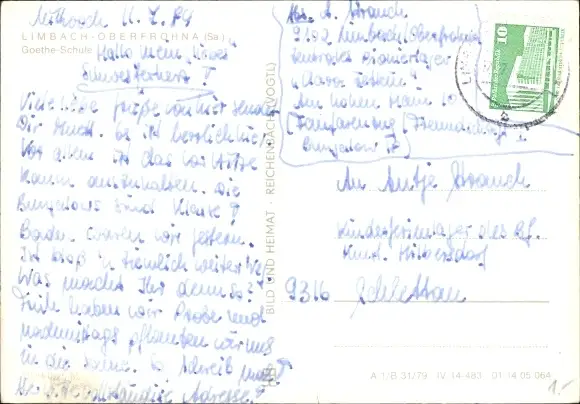 Mittwoch 11.7.84
LIMBACH-OBERFROHNA (Sa.)
Goethe-Schule
Hallo mein liebes
Schwesterherz!
Viele liebe Grüße von hier sendet
Dir Es ist herrlich hier.
Vor allem ist das vor Hitze
kaum auszuhalten. Die
Bungalows sind Klasse!
Baden waren wir gestern.
Ist bloß 'n ziemlich weiter Weg
Was macht Ihr denn so?
Früh haben wir Probe und
nachmittags pflanzen wir uns
in die Sonne. So schreib mal!
vollständige Adresse!
BILD UND HEIMAT · REICHENBACH (VOGTL)
Abs. A. Strauch
9102 Limbach-Oberfrohna
Zentrales Pionierlager
"Clara Zetkin"
Am hohen Hain 10
Bungalow
10
An Antje Strauch
Kinderferienlager des
Hilbersdorf
9316 Schlettau
A 1/B 31/79 IV-14-483 01 14 05 064
1.-